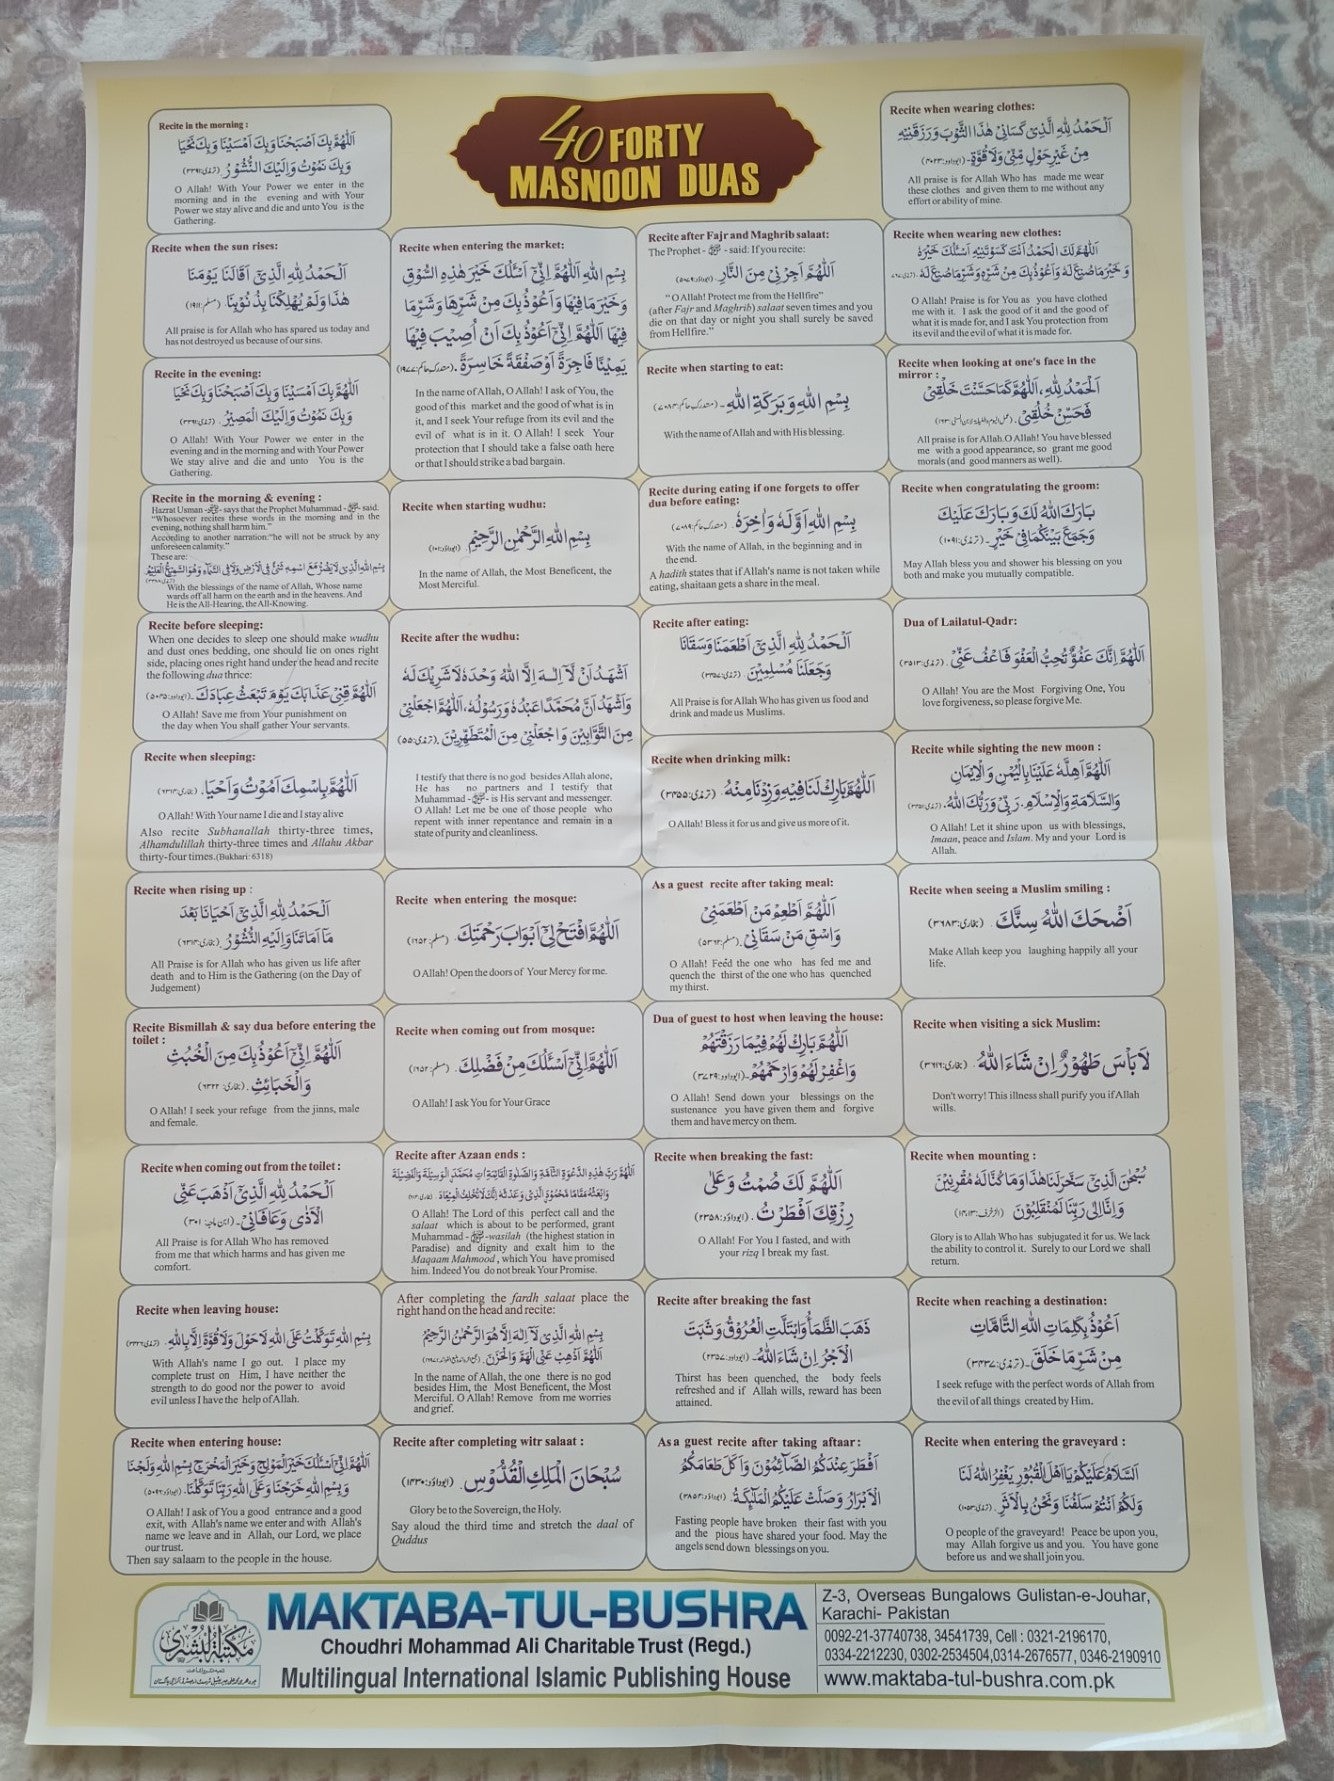 40 FORTY
MASNOON DUAS
Recite in the morning :
اَللّٰهُمَّ بِكَ اَصْبَحْنَا وَبِكَ اَمْسَيْنَا وَبِكَ نَحْيَا
وَبِكَ نَمُوْتُ وَاِلَيْكَ النُّشُوْرُ
O Allah! With Your Power we enter in the
morning and in the evening and with Your
Power we stay alive and die and unto You is the
Gathering.
Recite when the sun rises:
اَلْحَمْدُ لِلّٰهِ الَّذِيْ اَقَالَنَا يَوْمَنَا
هٰذَا وَلَمْ يُهْلِكْنَا بِذُنُوْبِنَا (مسلم: ۱۹۱۱)
All praise is for Allah who has spared us today and
has not destroyed us because of our sins.
Recite in the evening:
اَللّٰهُمَّ بِكَ اَمْسَيْنَا وَبِكَ اَصْبَحْنَا وَبِكَ نَحْيَا
وَبِكَ نَمُوْتُ وَاِلَيْكَ الْمَصِيْرُ
O Allah! With Your Power we enter in the
evening and in the morning and with Your Power
We stay alive and die and unto You is the
Gathering.
Recite in the morning & evening :
Hazrat Usman - says that the Prophet Muhammad - ﷺ - said:
"Whosoever recites these words in the morning and in the
evening, nothing shall harm him."
According to another narration:"he will not be struck by any
unforeseen calamity."
These are:
بِسْمِ اللّٰهِ الَّذِيْ لَا يَضُرُّ مَعَ اسْمِهٖ شَيْءٌ فِي الْاَرْضِ وَلَا فِي السَّمَآءِ وَهُوَ السَّمِيْعُ الْعَلِيْمُ
With the blessings of the name of Allah, Whose name
wards off all harm on the earth and in the heavens. And
He is the All-Hearing, the All-Knowing.
Recite before sleeping:
When one decides to sleep one should make wudhu
and dust ones bedding, one should lie on ones right
side, placing ones right hand under the head and recite
the following dua thrice:
اَللّٰهُمَّ قِنِيْ عَذَابَكَ يَوْمَ تَبْعَثُ عِبَادَكَ
O Allah! Save me from Your punishment on
the day when You shall gather Your servants.
Recite when sleeping:
اَللّٰهُمَّ بِاسْمِكَ اَمُوْتُ وَاَحْيَا.
O Allah! With Your name I die and I stay alive
Also recite Subhanallah thirty-three times,
Alhamdulillah thirty-three times and Allahu Akbar
thirty-four times.(Bukhari: 6318)
Recite when rising up :
اَلْحَمْدُ لِلّٰهِ الَّذِيْ اَحْيَانَا بَعْدَ
مَا اَمَاتَنَا وَاِلَيْهِ النُّشُوْرُ
All Praise is for Allah who has given us life after
death and to Him is the Gathering (on the Day of
Judgement)
Recite Bismillah & say dua before entering the
toilet :
اَللّٰهُمَّ اِنِّيْ اَعُوْذُ بِكَ مِنَ الْخُبُثِ
وَالْخَبَائِثِ. (بخاری: ۶۳۲۲)
O Allah! I seek your refuge from the jinns, male
and female.
Recite when coming out from the toilet :
اَلْحَمْدُ لِلّٰهِ الَّذِيْ اَذْهَبَ عَنِّي
الْاَذٰى وَعَافَانِيْ. (ابن ماجہ: ۳۰۱)
All Praise is for Allah Who has removed
from me that which harms and has given me
comfort.
Recite when leaving house:
بِسْمِ اللّٰهِ تَوَكَّلْتُ عَلَى اللّٰهِ لَا حَوْلَ وَلَا قُوَّةَ اِلَّا بِاللّٰهِ.
With Allah's name I go out. I place my
complete trust on Him, I have neither the
strength to do good nor the power to avoid
evil unless I have the help of Allah.
Recite when entering house:
اَللّٰهُمَّ اِنِّيْ اَسْئَلُكَ خَيْرَ الْمَوْلِجِ وَخَيْرَ الْمَخْرَجِ بِسْمِ اللّٰهِ وَلَجْنَا
وَبِسْمِ اللّٰهِ خَرَجْنَا وَعَلَى اللّٰهِ رَبِّنَا تَوَكَّلْنَا.
O Allah! I ask of You a good entrance and a good
exit, with Allah's name we enter and with Allah's
name we leave and in Allah, our Lord, we place
our trust.
Then say salaam to the people in the house.
Recite when entering the market:
بِسْمِ اللّٰهِ اَللّٰهُمَّ اِنِّيْ اَسْئَلُكَ خَيْرَ هٰذِهِ السُّوْقِ
وَخَيْرَ مَا فِيْهَا وَاَعُوْذُ بِكَ مِنْ شَرِّهَا وَشَرِّ مَا
فِيْهَا اَللّٰهُمَّ اِنِّيْ اَعُوْذُ بِكَ اَنْ اُصِيْبَ فِيْهَا
يَمِيْنًا فَاجِرَةً اَوْ صَفْقَةً خَاسِرَةً. (مستدرک حاکم: ۱۹۷۷)
In the name of Allah, O Allah! I ask of You, the
good of this market and the good of what is in
it, and I seek Your refuge from its evil and the
evil of what is in it. O Allah! I seek Your
protection that I should take a false oath here
or that I should strike a bad bargain.
Recite when starting wudhu:
بِسْمِ اللّٰهِ الرَّحْمٰنِ الرَّحِيْمِ
In the name of Allah, the Most Beneficent, the
Most Merciful.
Recite after the wudhu:
اَشْهَدُ اَنْ لَّاۤ اِلٰهَ اِلَّا اللّٰهُ وَحْدَهٗ لَا شَرِيْكَ لَهٗ
وَاَشْهَدُ اَنَّ مُحَمَّدًا عَبْدُهٗ وَرَسُوْلُهٗ، اَللّٰهُمَّ اجْعَلْنِيْ
مِنَ التَّوَّابِيْنَ وَاجْعَلْنِيْ مِنَ الْمُتَطَهِّرِيْنَ. (ترمذی: ۵۵)
I testify that there is no god besides Allah alone,
He has no partners and I testify that
Muhammad - ﷺ - is His servant and messenger.
O Allah! Let me be one of those people who
repent with inner repentance and remain in a
state of purity and cleanliness.
Recite when entering the mosque:
اَللّٰهُمَّ افْتَحْ لِيْ اَبْوَابَ رَحْمَتِكَ. (مسلم: ۱۶۵۲)
O Allah! Open the doors of Your Mercy for me.
Recite when coming out from mosque:
اَللّٰهُمَّ اِنِّيْ اَسْئَلُكَ مِنْ فَضْلِكَ. (مسلم: ۱۶۵۲)
O Allah! I ask You for Your Grace
Recite after Azaan ends :
اَللّٰهُمَّ رَبَّ هٰذِهِ الدَّعْوَةِ التَّامَّةِ وَالصَّلٰوةِ الْقَائِمَةِ اٰتِ مُحَمَّدَنِ الْوَسِيْلَةَ وَالْفَضِيْلَةَ
وَابْعَثْهُ مَقَامًا مَّحْمُوْدَنِ الَّذِيْ وَعَدْتَّهٗ اِنَّكَ لَا تُخْلِفُ الْمِيْعَادَ
O Allah! The Lord of this perfect call and the
salaat which is about to be performed, grant
Muhammad - ﷺ - wasilah (the highest station in
Paradise) and dignity and exalt him to the
Maqaam Mahmood, which You have promised
him. Indeed You do not break Your Promise.
After completing the fardh salaat place the
right hand on the head and recite:
بِسْمِ اللّٰهِ الَّذِيْ لَاۤ اِلٰهَ اِلَّا هُوَ الرَّحْمٰنُ الرَّحِيْمُ
اَللّٰهُمَّ اَذْهِبْ عَنِّي الْهَمَّ وَالْحَزَنَ.
In the name of Allah, the one there is no god
besides Him, the Most Beneficent, the Most
Merciful. O Allah! Remove from me worries
and grief.
Recite after completing witr salaat :
سُبْحَانَ الْمَلِكِ الْقُدُّوْسِ. (ابوداؤد: ۱۴۳۰)
Glory be to the Sovereign, the Holy.
Say aloud the third time and stretch the daal of
Quddus
Recite after Fajr and Maghrib salaat:
The Prophet - ﷺ - said: If you recite:
اَللّٰهُمَّ اَجِرْنِيْ مِنَ النَّارِ. (ابوداؤد: ۵۰۷۹)
"O Allah! Protect me from the Hellfire"
(after Fajr and Maghrib) salaat seven times and you
die on that day or night you shall surely be saved
from Hellfire."
Recite when starting to eat:
بِسْمِ اللّٰهِ وَبَرَكَةِ اللّٰهِ. (مستدرک حاکم: ۷۰۸۳)
With the name of Allah and with His blessing.
Recite during eating if one forgets to offer
dua before eating:
بِسْمِ اللّٰهِ اَوَّلَهٗ وَاٰخِرَهٗ.
With the name of Allah, in the beginning and in
the end.
A hadith states that if Allah's name is not taken while
eating, shaitaan gets a share in the meal.
Recite after eating:
اَلْحَمْدُ لِلّٰهِ الَّذِيْ اَطْعَمَنَا وَسَقَانَا
وَجَعَلَنَا مُسْلِمِيْنَ
All Praise is for Allah Who has given us food and
drink and made us Muslims.
Recite when drinking milk:
اَللّٰهُمَّ بَارِكْ لَنَا فِيْهِ وَزِدْنَا مِنْهُ (ترمذی: ۳۴۵۵)
O Allah! Bless it for us and give us more of it.
As a guest recite after taking meal:
اَللّٰهُمَّ اَطْعِمْ مَنْ اَطْعَمَنِيْ
وَاسْقِ مَنْ سَقَانِيْ. (مسلم: ۵۳۶۲)
O Allah! Feed the one who has fed me and
quench the thirst of the one who has quenched
my thirst.
Dua of guest to host when leaving the house:
اَللّٰهُمَّ بَارِكْ لَهُمْ فِيْمَا رَزَقْتَهُمْ
وَاغْفِرْ لَهُمْ وَارْحَمْهُمْ. (ابوداؤد: ۳۷۲۹)
O Allah! Send down your blessings on the
sustenance you have given them and forgive
them and have mercy on them.
Recite when breaking the fast:
اَللّٰهُمَّ لَكَ صُمْتُ وَعَلٰى
رِزْقِكَ اَفْطَرْتُ. (ابوداؤد: ۲۳۵۸)
O Allah! For You I fasted, and with
your rizq I break my fast.
Recite after breaking the fast
ذَهَبَ الظَّمَأُ وَابْتَلَّتِ الْعُرُوْقُ وَثَبَتَ
الْاَجْرُ اِنْ شَاءَ اللّٰهُ. (ابوداؤد: ۲۳۵۷)
Thirst has been quenched, the body feels
refreshed and if Allah wills, reward has been
attained.
As a guest recite after taking aftaar :
اَفْطَرَ عِنْدَكُمُ الصَّآئِمُوْنَ وَاَكَلَ طَعَامَكُمُ
الْاَبْرَارُ وَصَلَّتْ عَلَيْكُمُ الْمَلٰٓئِكَةُ. (ابوداؤد: ۳۸۵۴)
Fasting people have broken their fast with you
and the pious have shared your food. May the
angels send down blessings on you.
Recite when wearing clothes:
اَلْحَمْدُ لِلّٰهِ الَّذِيْ كَسَانِيْ هٰذَا الثَّوْبَ وَرَزَقَنِيْهِ
مِنْ غَيْرِ حَوْلٍ مِّنِّيْ وَلَا قُوَّةٍ. (ابوداؤد: ۴۰۲۳)
All praise is for Allah Who has made me wear
these clothes and given them to me without any
effort or ability of mine.
Recite when wearing new clothes:
اَللّٰهُمَّ لَكَ الْحَمْدُ اَنْتَ كَسَوْتَنِيْهِ اَسْئَلُكَ خَيْرَهٗ
وَخَيْرَ مَا صُنِعَ لَهٗ وَاَعُوْذُ بِكَ مِنْ شَرِّهٖ وَشَرِّ مَا صُنِعَ لَهٗ
O Allah! Praise is for You as you have clothed
me with it. I ask of the good of it and the good of
what it is made for, and I ask You protection from
its evil and the evil of what it is made for.
Recite when looking at one's face in the
mirror :
اَلْحَمْدُ لِلّٰهِ، اَللّٰهُمَّ كَمَا حَسَّنْتَ خَلْقِيْ
فَحَسِّنْ خُلُقِيْ.
All praise is for Allah. O Allah! You have blessed
me with a good appearance, so grant me good
morals (and good manners as well).
Recite when congratulating the groom:
بَارَكَ اللّٰهُ لَكَ وَبَارَكَ عَلَيْكَ
وَجَمَعَ بَيْنَكُمَا فِيْ خَيْرٍ. (ترمذی: ۱۰۹۱)
May Allah bless you and shower his blessing on you
both and make you mutually compatible.
Dua of Lailatul-Qadr:
اَللّٰهُمَّ اِنَّكَ عَفُوٌّ تُحِبُّ الْعَفْوَ فَاعْفُ عَنِّيْ. (ترمذی: ۳۵۱۳)
O Allah! You are the Most Forgiving One, You
love forgiveness, so please forgive Me.
Recite while sighting the new moon :
اَللّٰهُمَّ اَهِلَّهٗ عَلَيْنَا بِالْيُمْنِ وَالْاِيْمَانِ
وَالسَّلَامَةِ وَالْاِسْلَامِ، رَبِّيْ وَرَبُّكَ اللّٰهُ.
O Allah! Let it shine upon us with blessings,
Imaan, peace and Islam. My and your Lord is
Allah.
Recite when seeing a Muslim smiling :
اَضْحَكَ اللّٰهُ سِنَّكَ. (بخاری: ۳۶۸۳)
Make Allah keep you laughing happily all your
life.
Recite when visiting a sick Muslim:
لَا بَأْسَ طَهُوْرٌ اِنْ شَاءَ اللّٰهُ. (بخاری: ۳۶۱۶)
Don't worry! This illness shall purify you if Allah
wills.
Recite when mounting :
سُبْحٰنَ الَّذِيْ سَخَّرَ لَنَا هٰذَا وَمَا كُنَّا لَهٗ مُقْرِنِيْنَ
وَاِنَّا اِلٰى رَبِّنَا لَمُنْقَلِبُوْنَ
Glory is to Allah Who has subjugated it for us. We lack
the ability to control it. Surely to our Lord we shall
return.
Recite when reaching a destination:
اَعُوْذُ بِكَلِمَاتِ اللّٰهِ التَّامَّاتِ
مِنْ شَرِّ مَا خَلَقَ. (ترمذی: ۳۴۳۷)
I seek refuge with the perfect words of Allah from
the evil of all things created by Him.
Recite when entering the graveyard :
اَلسَّلَامُ عَلَيْكُمْ يَا اَهْلَ الْقُبُوْرِ يَغْفِرُ اللّٰهُ لَنَا
وَلَكُمْ اَنْتُمْ سَلَفُنَا وَنَحْنُ بِالْاَثَرِ. (ترمذی: ۱۰۵۳)
O people of the graveyard! Peace be upon you,
may Allah forgive us and you. You have gone
before us and we shall join you.
مکتبۃ البشریٰ
MAKTABA-TUL-BUSHRA
Choudhri Mohammad Ali Charitable Trust (Regd.)
Multilingual International Islamic Publishing House
Z-3, Overseas Bungalows Gulistan-e-Jouhar,
Karachi- Pakistan
0092-21-37740738, 34541739, Cell : 0321-2196170,
0334-2212230, 0302-2534504,0314-2676577, 0346-2190910
www.maktaba-tul-bushra.com.pk